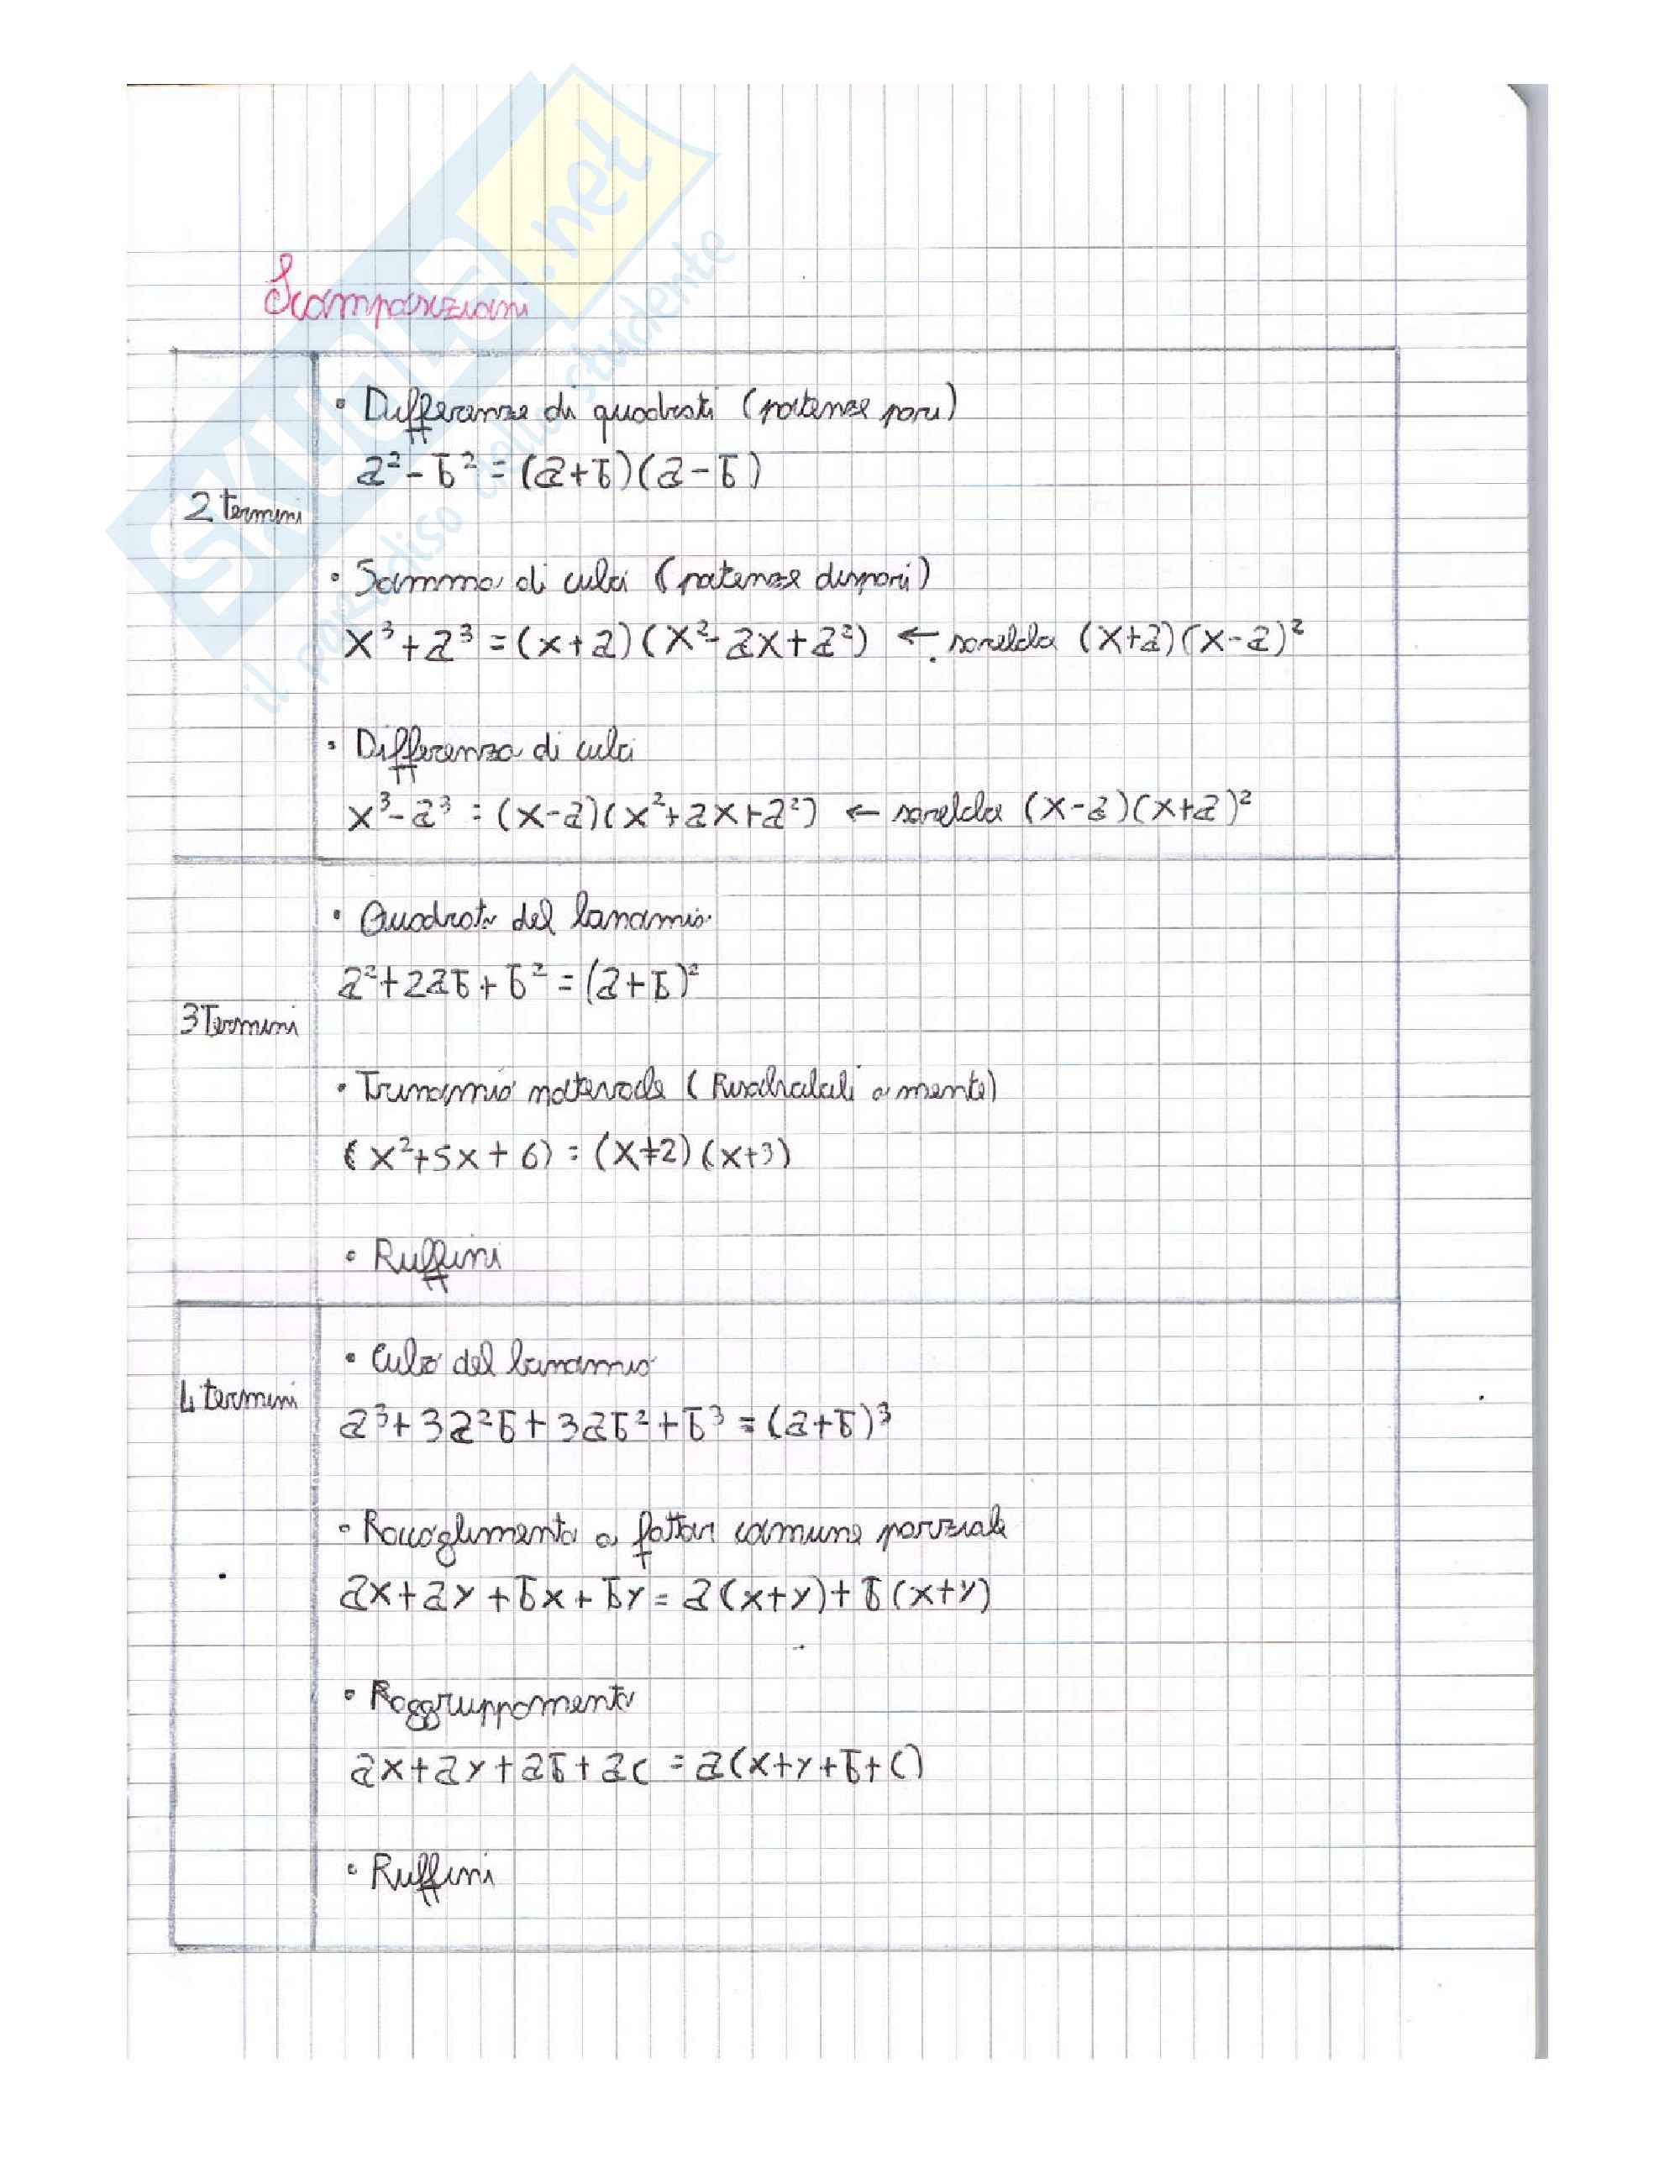 SKUOLA.net
il paradiso dello studente
Scomposizioni
2 termini
• Differenze di quadrati (potenze pari)
a²-b² = (a+b)(a-b)
• Somma di cubi (potenze dispari)
x³+a³ = (x+a)(x²-ax+a²) ← sarebbe (x+a)(x-a)²
• Differenza di cubi
x³-a³ = (x-a)(x²+ax+a²) ← sarebbe (x-a)(x+a)²
3 Termini
• Quadrato del binomio
a²+2ab+b² = (a+b)²
• Trinomio notevole (Risolvibili a mente)
(x²+5x+6) = (x+2)(x+3)
• Ruffini
4 termini
• Cubo del binomio
a³+3a²b+3ab²+b³ = (a+b)³
• Raccoglimento a fattor comune parziale
ax+ay+bx+by = a(x+y)+b(x+y)
• Raggruppamento
ax+ay+ab+ac = a(x+y+b+c)
• Ruffini